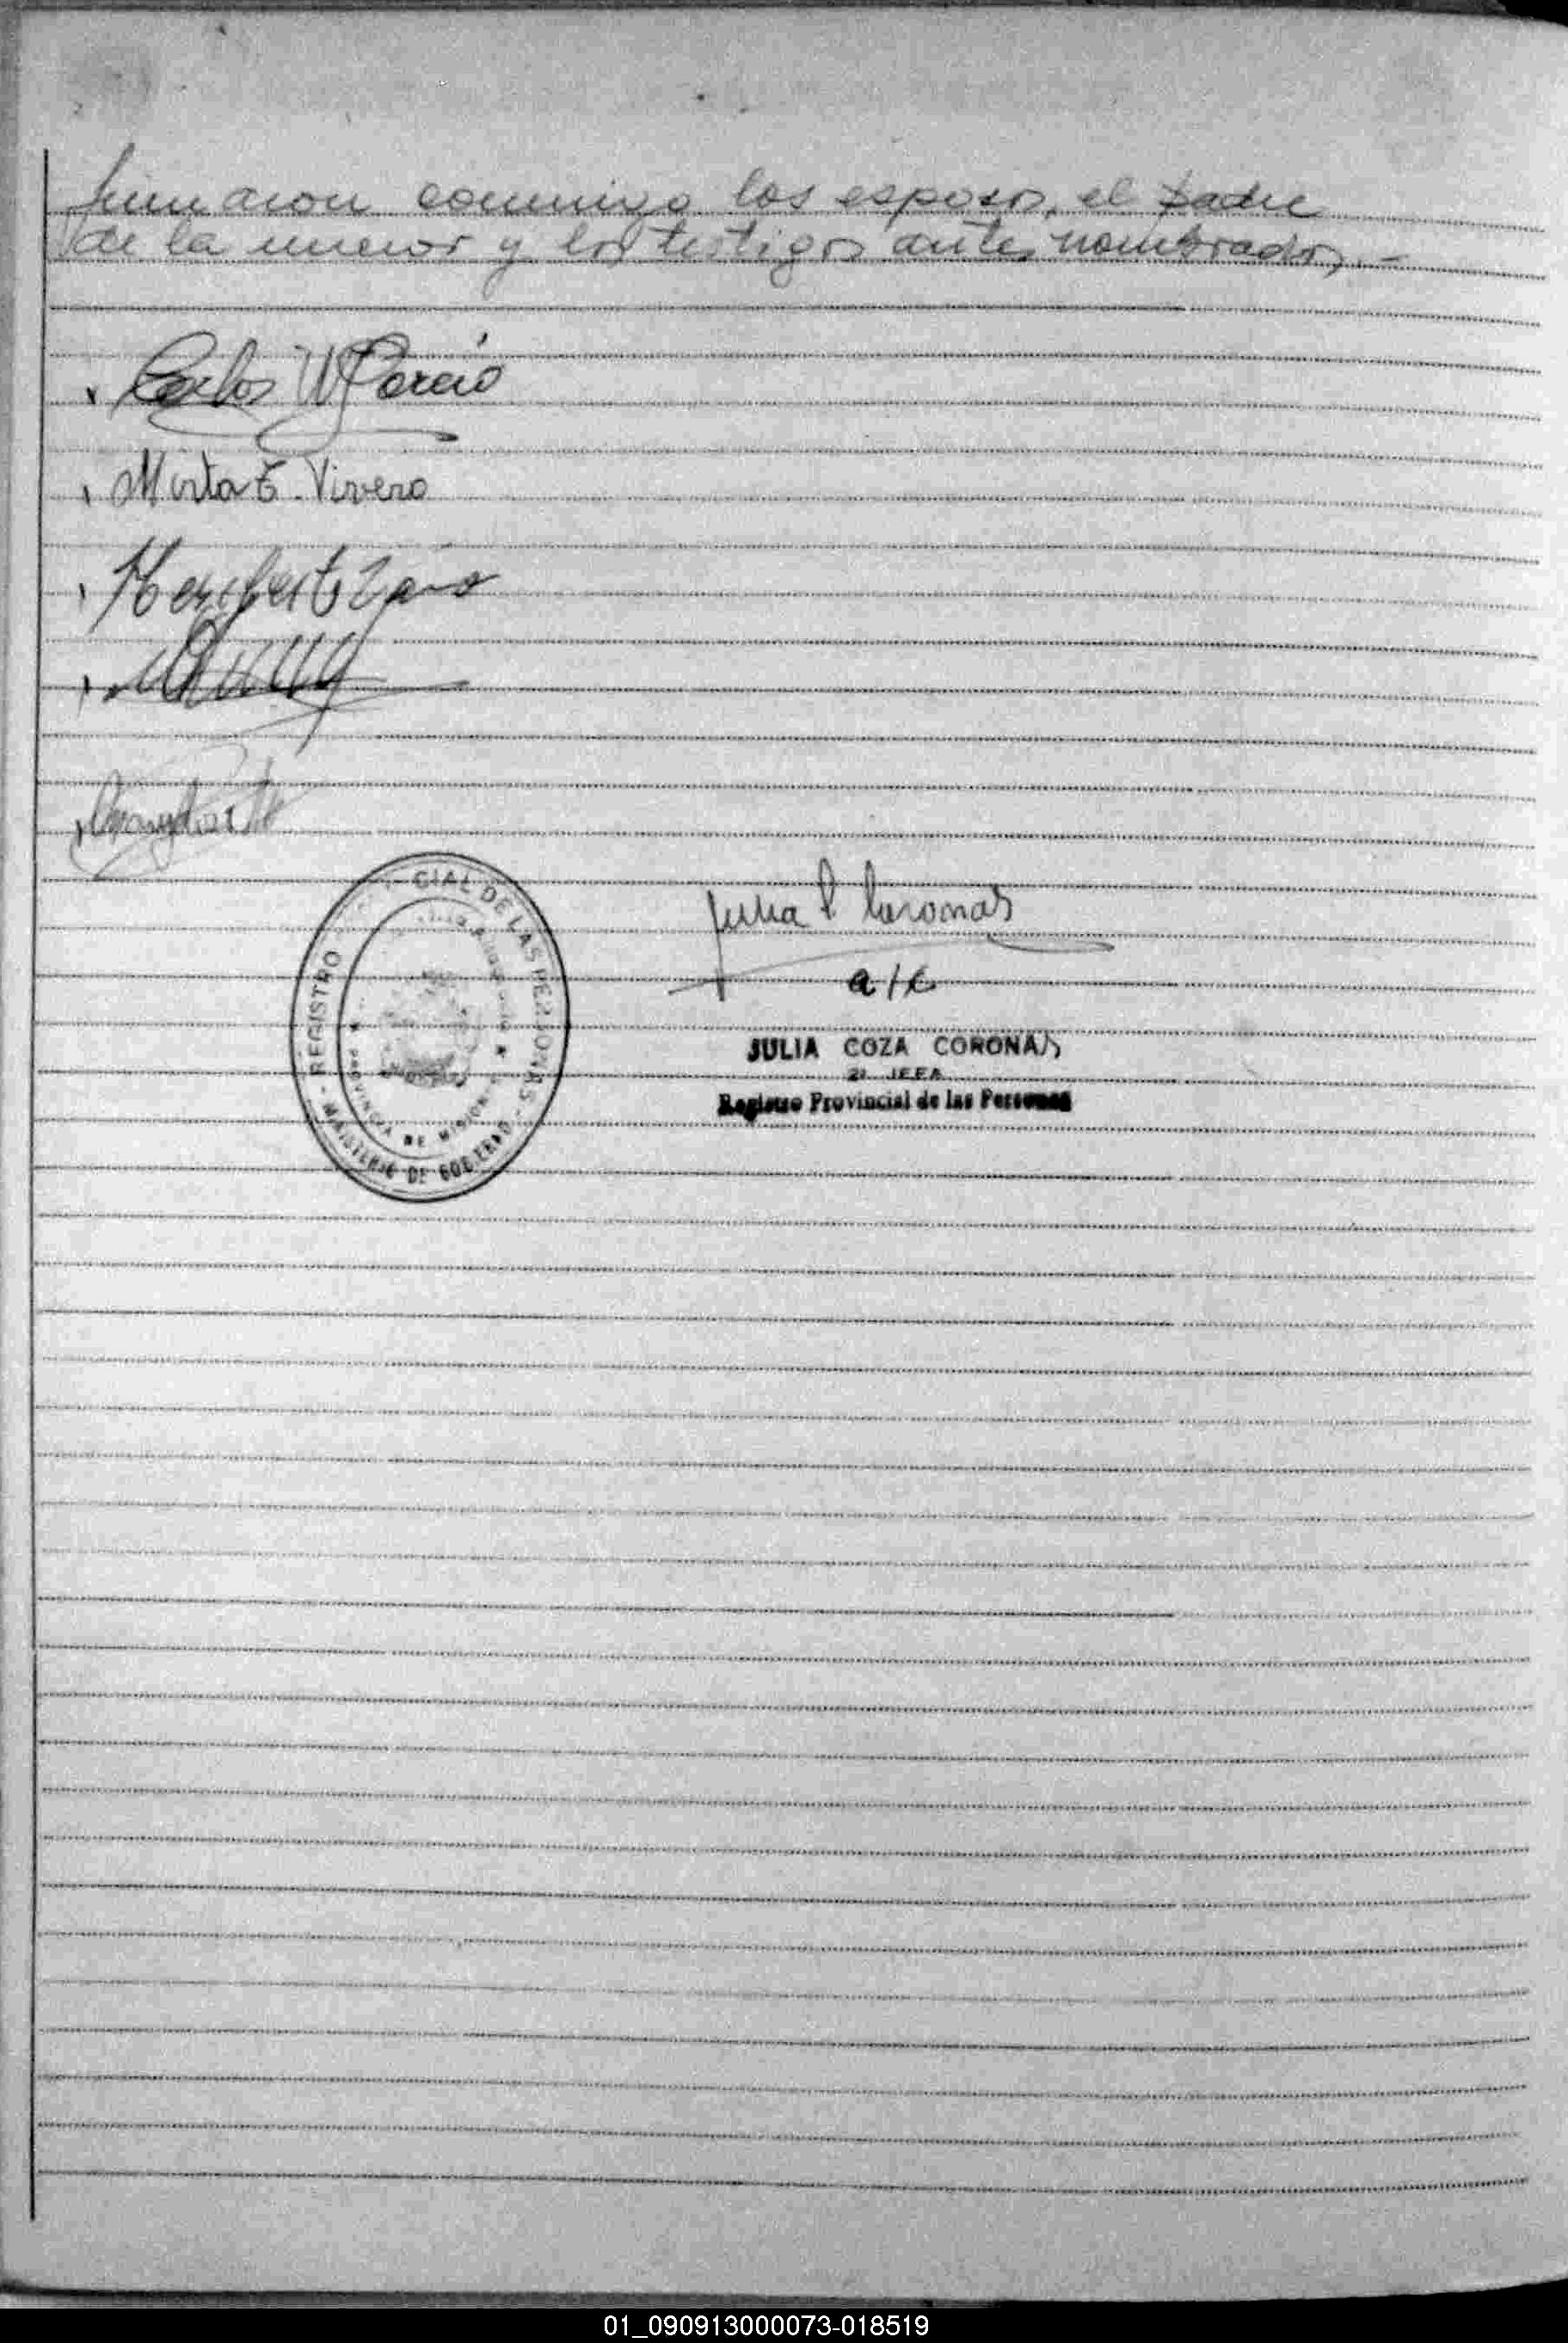 firmaron conmigo los esposos, el padre
de la menor y los testigos antes nombrados.-
Carlos W García
Mirta E. Vivero
REGISTRO CIAL DE LAS PERSONAS - MINISTERIO DE GOBIERNO -
PROVINCIA DE MISIONES
Julia C Coronas
a/c
JULIA COZA CORONAS
2ª JEFA
Registro Provincial de las Personas
01_090913000073-018519